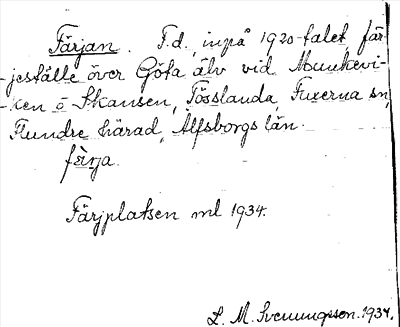 Färjan. T.d. inpå 1920-talet fär-
-jeställe över Göta älv vid Munkevi-
-ken o Skansen, Tösslanda, Fuxerna sn,
Flundre härad, Älfsborgs län.
färja.
Färjplatsen ml 1934.
L. M. Svenungsson. 1934.